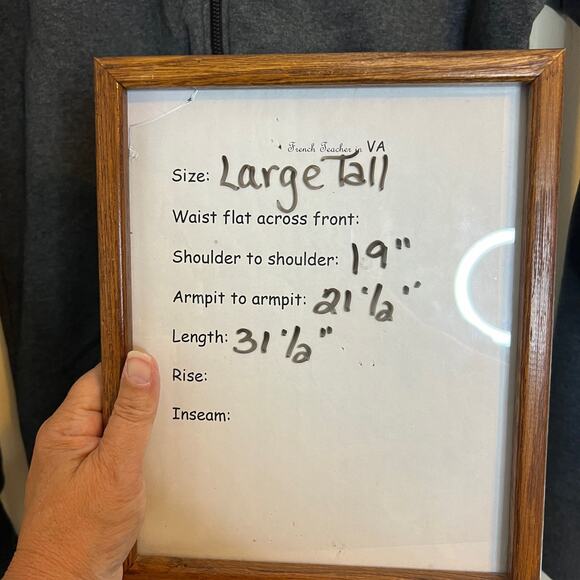 French Teacher in VA
Size: Large Tall
Waist flat across front:
Shoulder to shoulder: 19"
Armpit to armpit: 21 1/2"
Length: 31 1/2"
Rise:
Inseam: